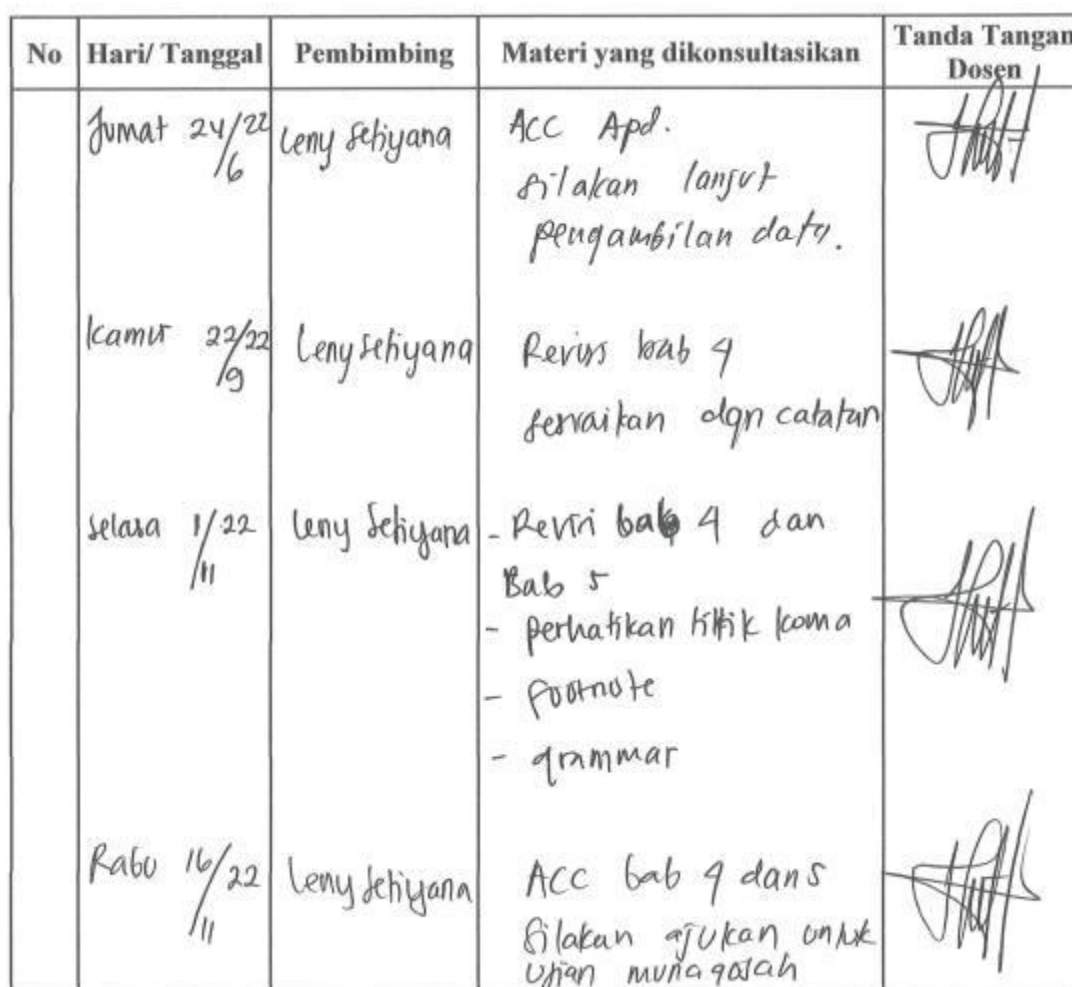 No Hari/ Tanggal Pembimbing Materi yang dikonsultasikan Tanda Tangan Dosen
Jumat 24/22 /6 Leny Setiyana ACC Apd.
silakan lanjut
pengambilan data.
Kamis 22/22 /9 Leny Setiyana Revisi bab 4
sesuaikan dgn catatan
Selasa 1/22 /11 Leny Setiyana - Revisi bab 4 dan
Bab 5
- perhatikan titik koma
- Footnote
- grammar
Rabu 16/22 /11 Leny Setiyana ACC bab 4 dan 5
Silakan ajukan untuk
Ujian munaqosah